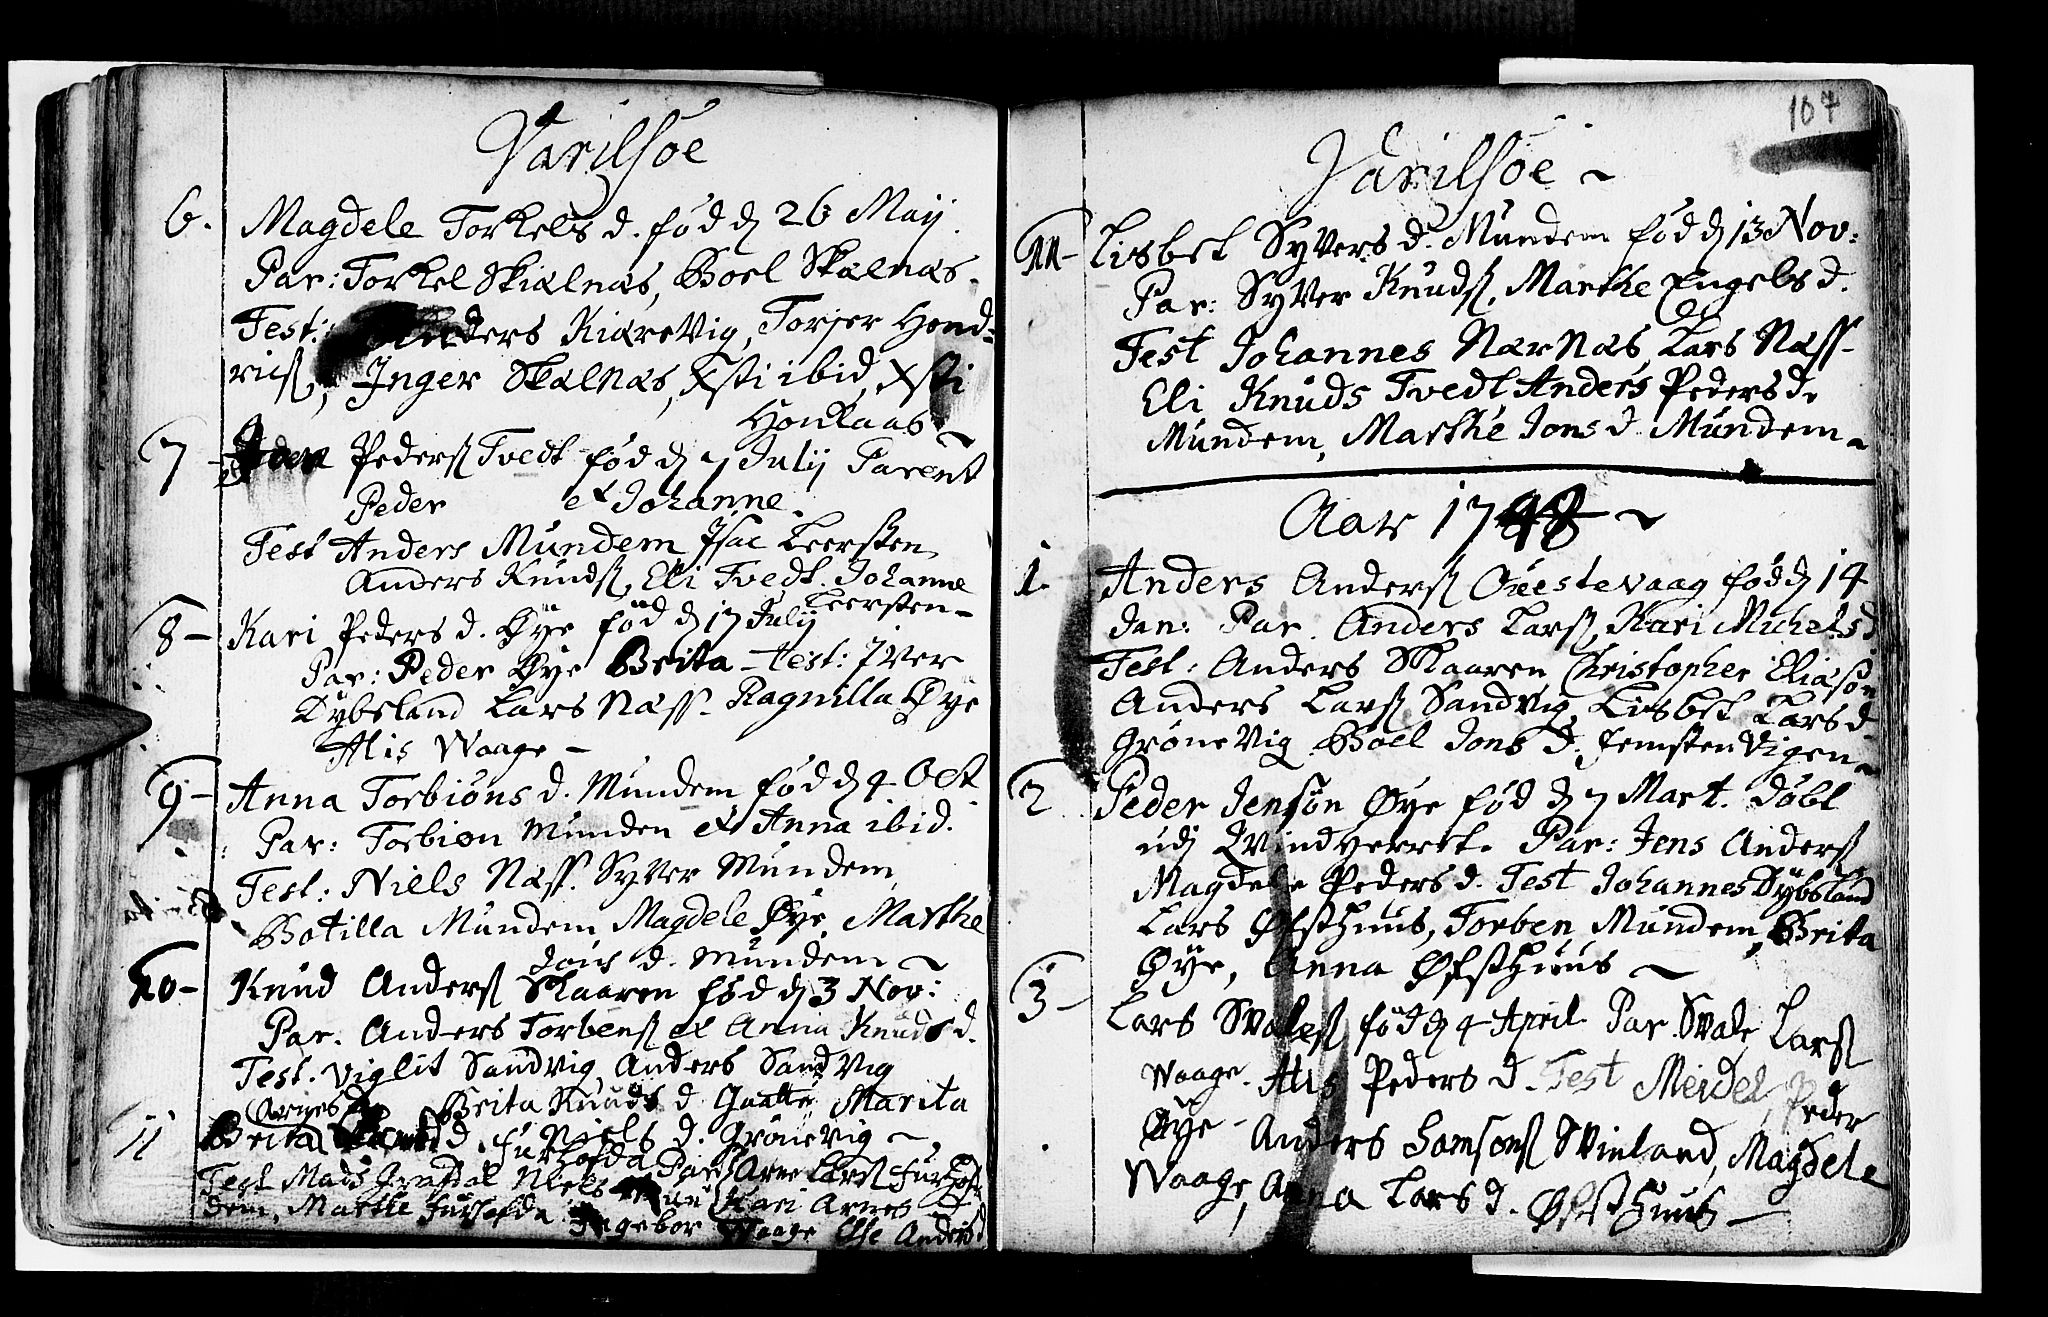 Varilsøe
6. Magdele Torkels d. født d 26 Maij.
Par: Torkel Skialnæs, Boel Skalnæs.
Test: Anders Kiærevig, Torjer Hend-
richs, Inger Skalnæs, Xsti ibid, Xsti
Honkaas
7 - Peders Tvedt fød d 7 Julij Parent
Peder et Johanne.
Test Anders Mundem Isac Leersten
Anders Knuds, Eli Tvedt. Johanne
Leersten -
8 - Kari Peders d. Øye fød d 17 Julij
Par: Peder Øye Brita - test: Iver
Dybsland Lars Næss. Ragnilla Øye
Alis Waage -
9 - Anna Torbiøns d. Mundem fød d 4 Oct
Par: Torbiøn Munden et Anna ibid.
Test: Niels Næss. Syver Mundem,
Botilla Mundem Magdele Øye, Marthe
Jons d. Mundem ~
10 - Knud Anders Skaaren fød d 3 Nov:
Par. Anders Torbens et Anna Knuds d.
Test. Viglit Sandvig, Anders Sandvig
Brita Knuds d Gaatte, Marita
Niels d. Grønevig ~
11 Brita Arnes d. Furhofda Par: Arne Lars
Test Mads Niels Kari Arnes d
dem, Marthe Furhofda Ingebor Waage Else Anders d
107
Varilsøe ~
Lisbet Syvers d. Mundem fød d 13 Nov:
Par: Syver Knuds, Marthe Engels d.
Test Johannes Nernæs, Lars Næss-
Eli Knuds Tvedt Anders Peders d.
Mundem, Marthe Jons d Mundem ~
Aar 1748 ~
1. Anders Anders Ouestevaag fød d 14
Jan: Par. Anders Lars, Kari Michels d
Test: Anders Skaaren Christopher Eliasøn
Anders Lars Sandvig, Lisbet Lars d.
Grønevig Boel Jons d. Jemstenvigen ~
2 Peder Jensøn Øye fød d 7 Mart. døbt
udj Qvindherret. Par: Jens Anders
Magdele Peders d. Test Johannes Dybsland
Lars Øfsthuus, Torben Mundem, Brita
Øye, Anna Øfsthuus ~
3 - Lars Svales fød d 4 April Par Svale Lars
Waage. Alis Peders d. Test Meidel, Peder
Øye - Anders Samsons Svinland, Magdele
Waage, Anna Lars d. Øfsthuus -